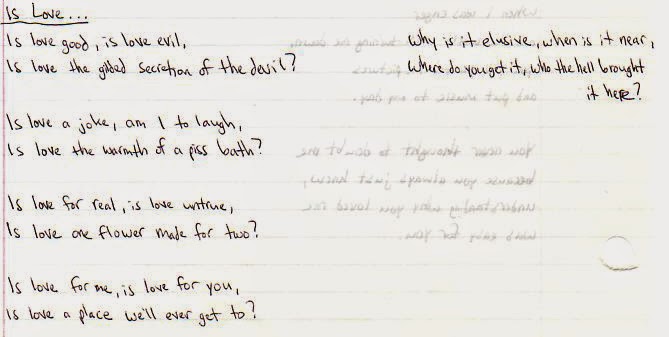 Is Love...
Is love good, is love evil,
Is love the gilded secretion of the devil?
Is love a joke, am I to laugh,
Is love the warmth of a piss bath?
Is love for real, is love untrue,
Is love one flower made for two?
Is love for me, is love for you,
Is love a place we'll ever get to?
Why is it elusive, when is it near,
Where do you get it, who the hell brought
it here?